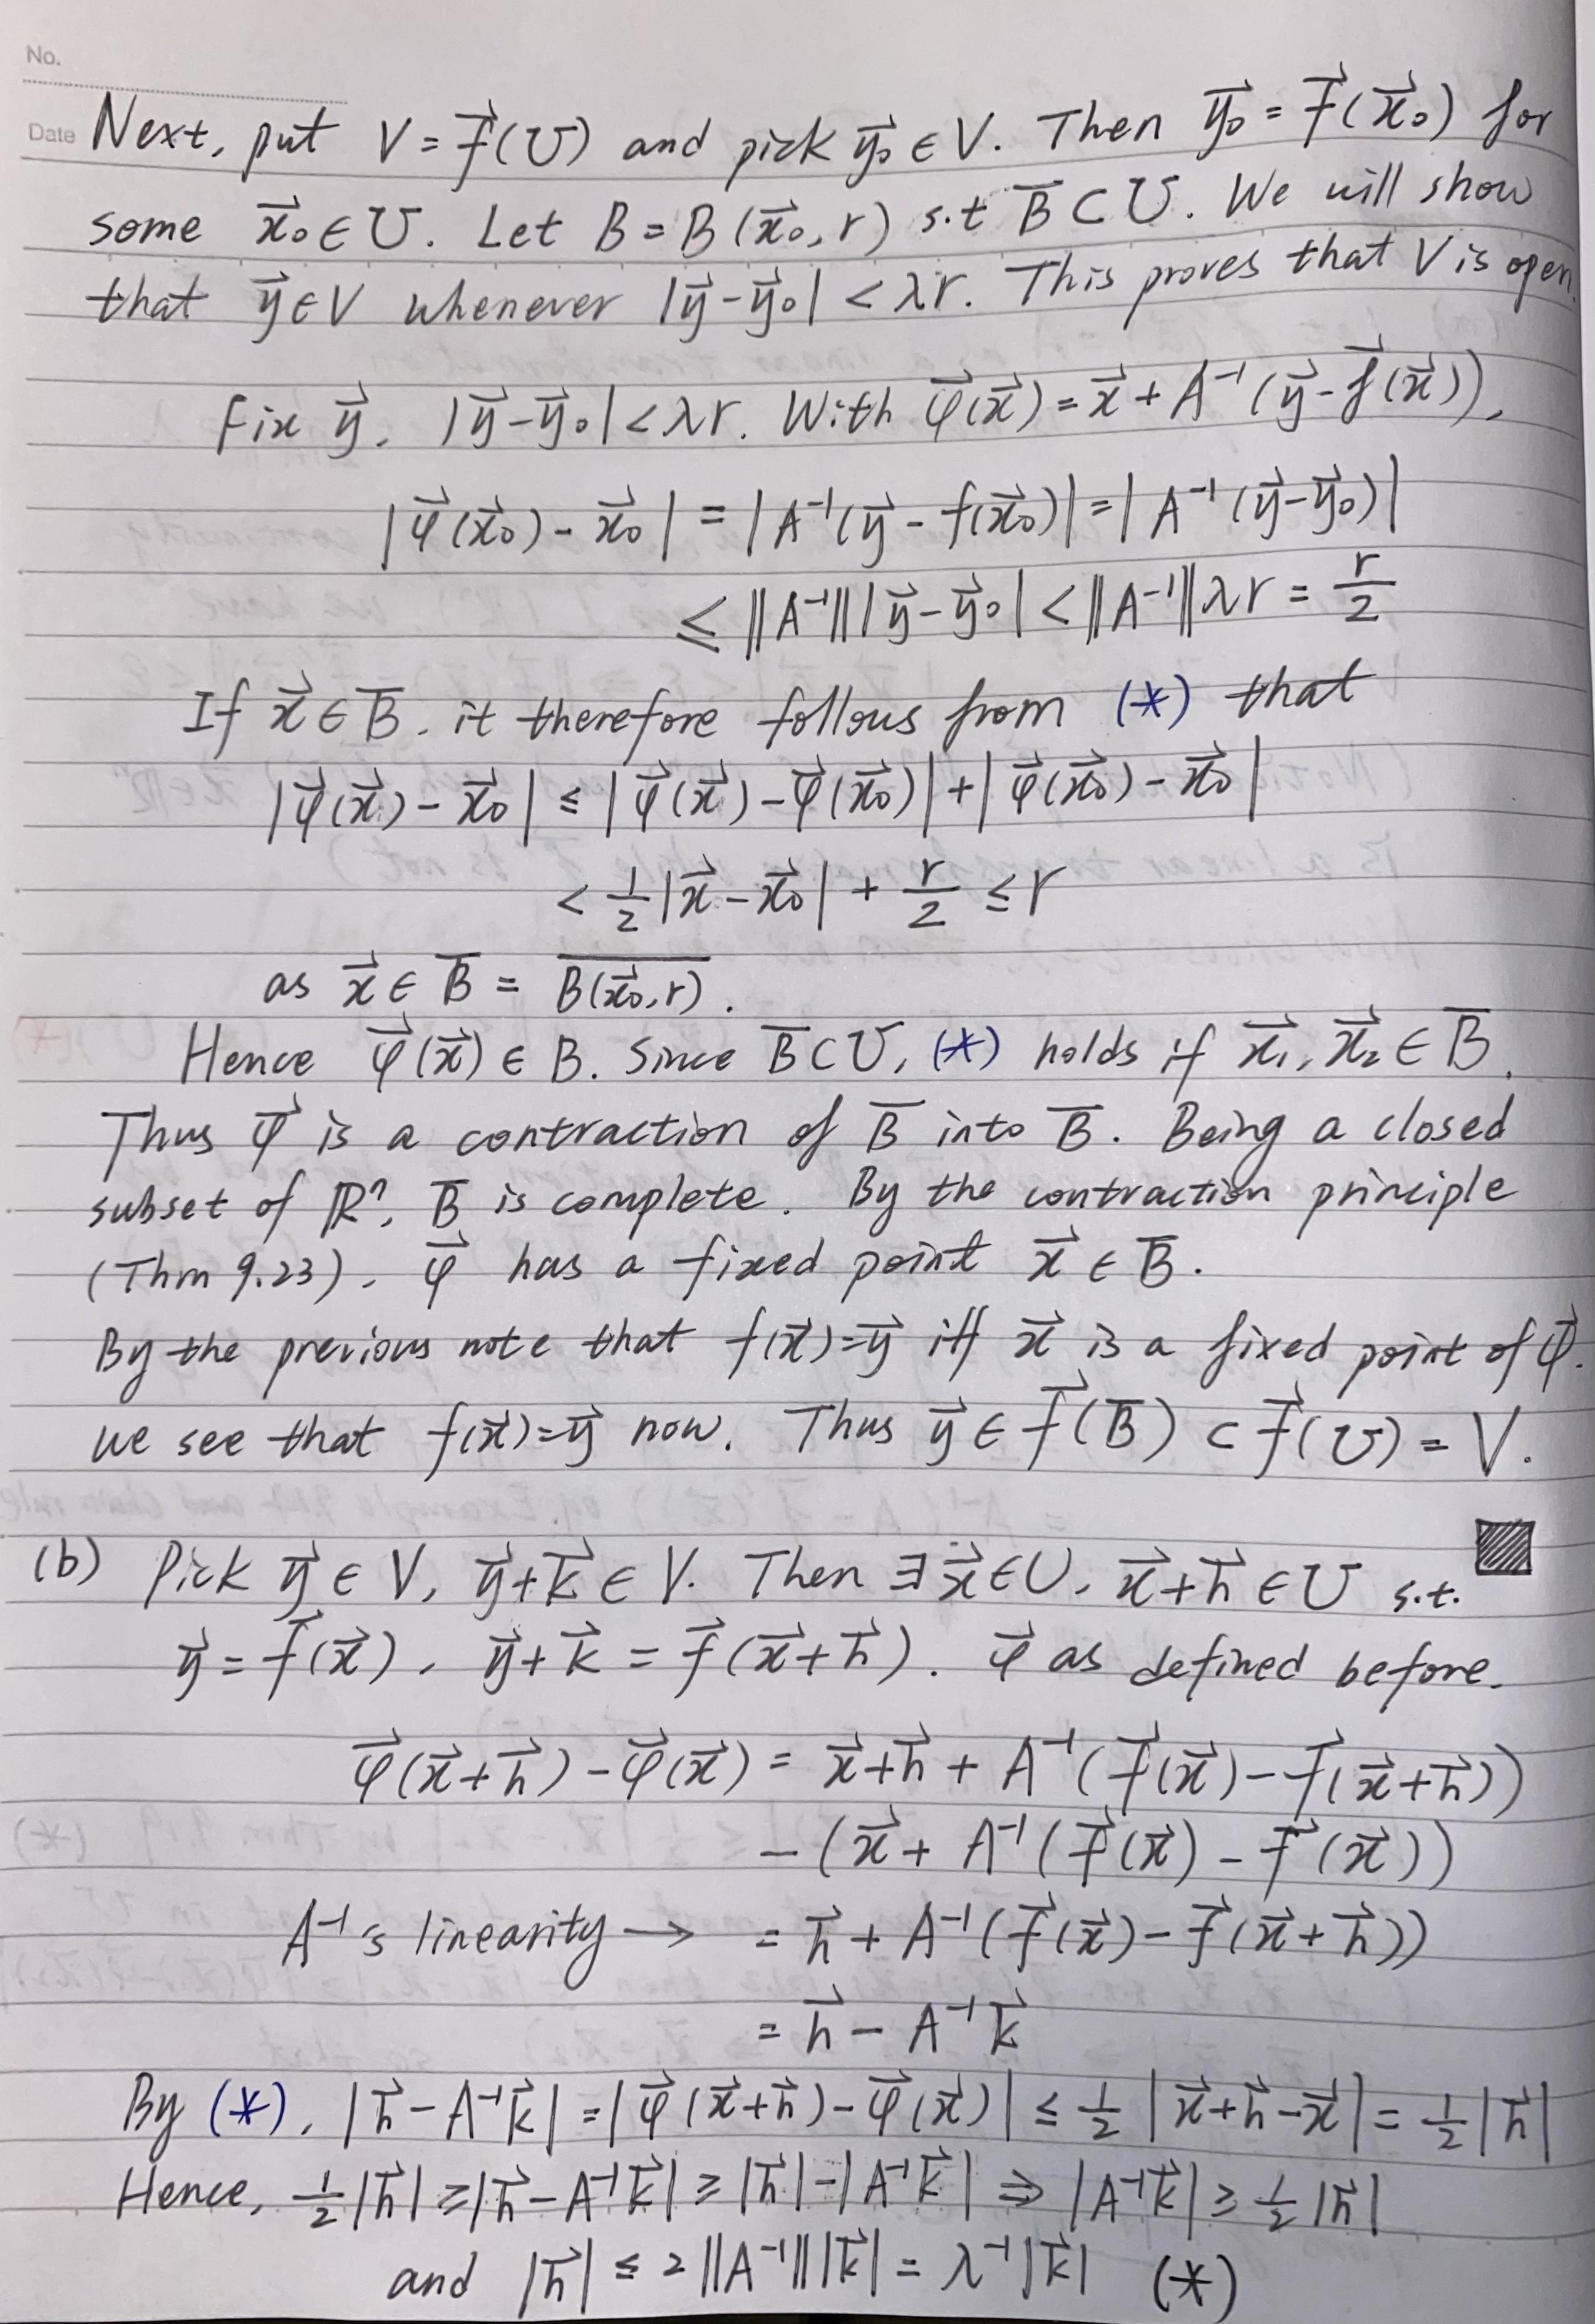 No.
Date
Next, put V = f⃗(U) and pick y⃗₀ ∈ V. Then y⃗₀ = f⃗(x⃗₀) for
some x⃗₀ ∈ U. Let B = B(x⃗₀, r) s.t B̅ ⊂ U. We will show
that y⃗ ∈ V whenever |y⃗ - y⃗₀| < λr. This proves that V is open.
Fix y⃗, |y⃗ - y⃗₀| < λr. With φ⃗(x⃗) = x⃗ + A⁻¹(y⃗ - f⃗(x⃗)),
|φ⃗(x⃗₀) - x⃗₀| = |A⁻¹(y⃗ - f(x⃗₀)| = |A⁻¹(y⃗ - y⃗₀)|
≤ ‖A⁻¹‖|y⃗ - y⃗₀| < ‖A⁻¹‖λr = r/2
If x⃗ ∈ B̅, it therefore follows from (*) that
|φ⃗(x⃗) - x⃗₀| ≤ |φ⃗(x⃗) - φ⃗(x⃗₀)| + |φ⃗(x⃗₀) - x⃗₀|
< 1/2|x⃗ - x⃗₀| + r/2 ≤ r
as x⃗ ∈ B̅ = \overline{B(x⃗₀, r)}.
Hence φ⃗(x⃗) ∈ B. Since B̅ ⊂ U, (*) holds if x⃗₁, x⃗₂ ∈ B̅.
Thus φ⃗ is a contraction of B̅ into B̅. Being a closed
subset of ℝⁿ, B̅ is complete. By the contraction principle
(Thm 9.23), φ⃗ has a fixed point x⃗ ∈ B̅.
By the previous note that f(x⃗)=y⃗ iff x⃗ is a fixed point of φ⃗.
we see that f(x⃗)=y⃗ now. Thus y⃗ ∈ f⃗(B̅) ⊂ f⃗(U) = V.
(b) Pick y⃗ ∈ V, y⃗+k⃗ ∈ V. Then ∃x⃗∈U, x⃗+h⃗ ∈ U s.t.
y⃗ = f⃗(x⃗), y⃗+k⃗ = f⃗(x⃗+h⃗). φ⃗ as defined before.
φ⃗(x⃗+h⃗) - φ⃗(x⃗) = x⃗+h⃗ + A⁻¹(f⃗(x⃗) - f⃗(x⃗+h⃗))
- (x⃗ + A⁻¹(f⃗(x⃗) - f⃗(x⃗))
A⁻¹'s linearity → = h⃗ + A⁻¹(f⃗(x⃗) - f⃗(x⃗+h⃗))
= h⃗ - A⁻¹k⃗
By (*), |h⃗ - A⁻¹k⃗| = |φ⃗(x⃗+h⃗) - φ⃗(x⃗)| ≤ 1/2 |x⃗+h⃗-x⃗| = 1/2|h⃗|
Hence, 1/2|h⃗| ≥ |h⃗ - A⁻¹k⃗| ≥ |h⃗| - |A⁻¹k⃗| ⇒ |A⁻¹k⃗| ≥ 1/2|h⃗|
and |h⃗| ≤ 2‖A⁻¹‖|k⃗| = λ⁻¹|k⃗| (*)